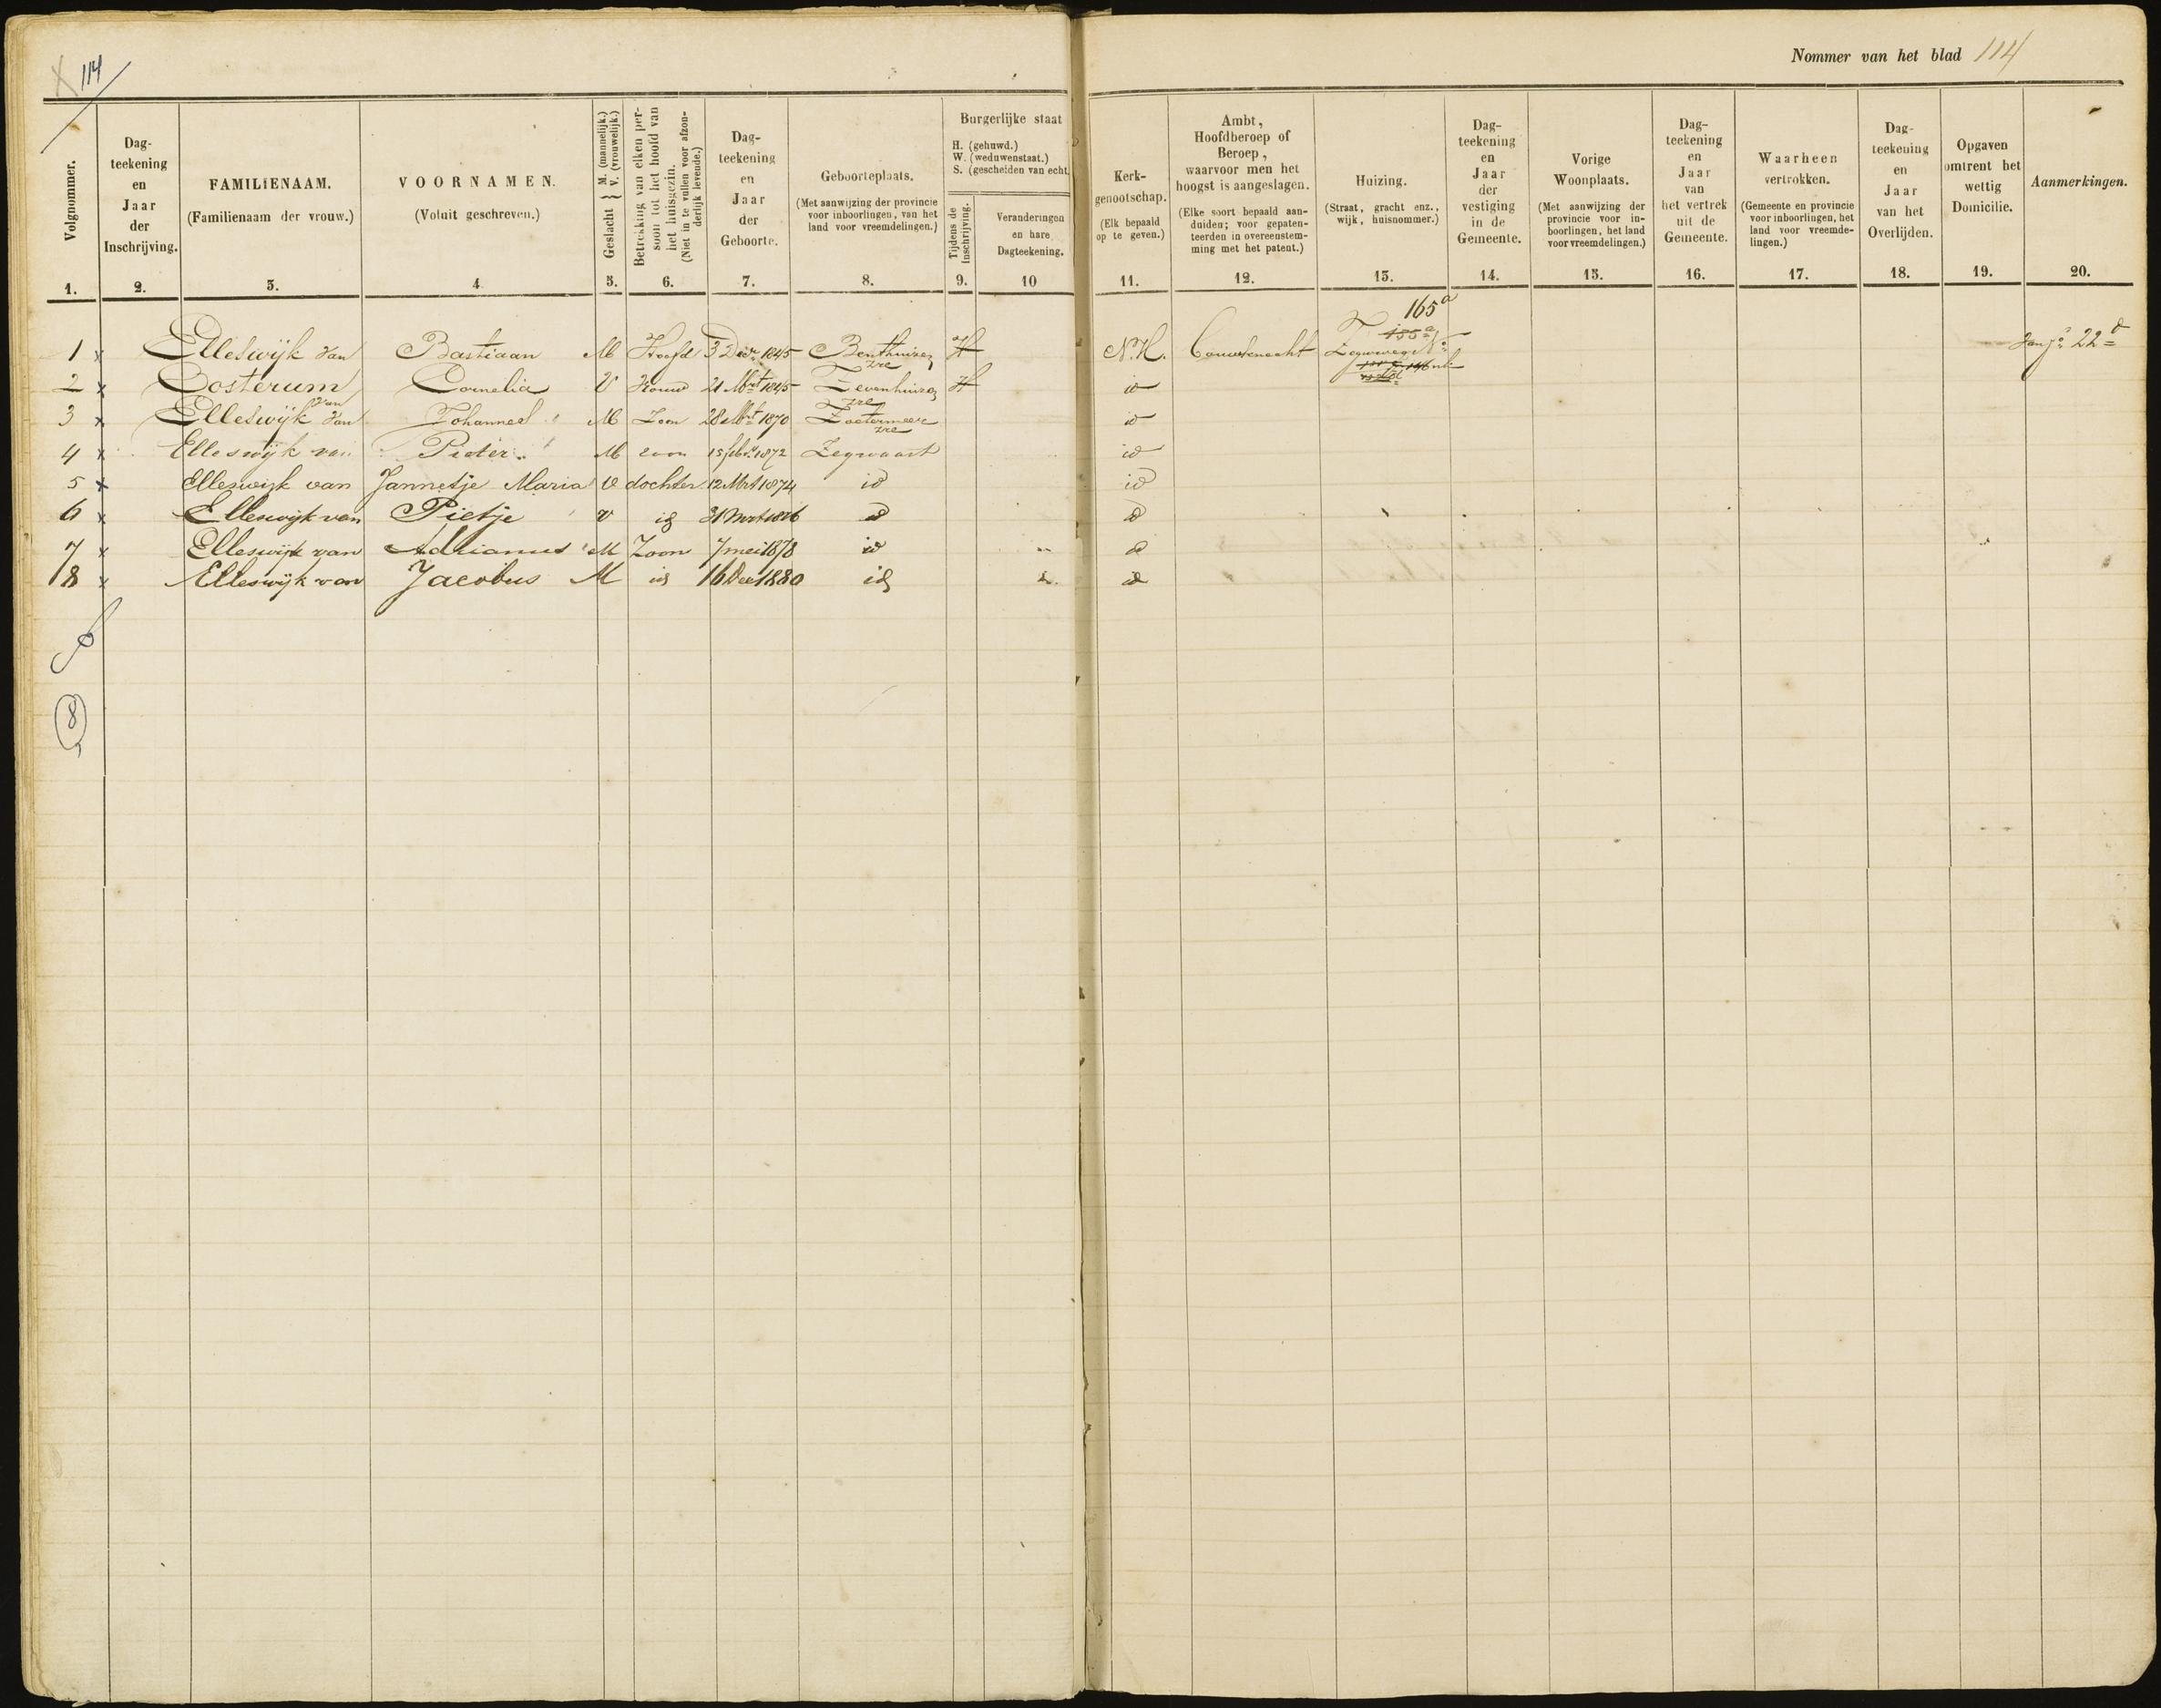 114
Nommer van het blad 114
Volgnommer.
Dag-
teekening
en
Jaar
der
Inschrijving.
FAMILIENAAM.
(Familienaam der vrouw.)
VOORNAMEN.
(Voluit geschreven.)
Geslacht { M. (mannelijk.) V. (vrouwelijk.)
Betrekking van elken per-
soon tot het hoofd van
het huisgezin.
(Niet in te vullen voor afzon-
derlijk levende.)
Dag-
teekening
en
Jaar
der
Geboorte.
Geboorteplaats.
(Met aanwijzing der provincie
voor inboorlingen, van het
land voor vreemdelingen.)
Burgerlijke staat
H. (gehuwd.)
W. (weduwenstaat.)
S. (gescheiden van echt.
Tijdens de
Inschrijving.
Veranderingen
en hare
Dagteekening.
Kerk-
genootschap.
(Elk bepaald
op te geven.)
Ambt,
Hoofdberoep of
Beroep,
waarvoor men het
hoogst is aangeslagen.
(Elke soort bepaald aan-
duiden; voor gepaten-
teerden in overeenstem-
ming met het patent.)
Huizing.
(Straat, gracht enz.,
wijk, huisnommer.)
Dag-
teekening
en
Jaar
der
vestiging
in de
Gemeente.
Vorige
Woonplaats.
(Met aanwijzing der
provincie voor in-
boorlingen, het land
voor vreemdelingen.)
Dag-
teekening
en
Jaar
van
het vertrek
uit de
Gemeente.
Waarheen
vertrokken.
(Gemeente en provincie
voor inboorlingen, het
land voor vreemde-
lingen.)
Dag-
teekening
en
Jaar
van het
Overlijden.
Opgaven
omtrent het
wettig
Domicilie.
Aanmerkingen.
1. 2. 3. 4 5. 6. 7. 8. 9. 10 11. 12. 13. 14. 15. 16. 17. 18. 19. 20.
165a
1 x Elleswijk van Bastiaan M Hoofd 3 Decr 1845 Benthuizen H N.H. Bouwknecht Zegwaag No 22
zre
2 x Oosterum Cornelia V Vrouw 21 Mrt 1845 Zevenhuizen H id
van zre
3 x Elleswijk van Johannes M Zoon 28 Mrt 1870 Zoetermeer id
zre
4 x Elleswijk van Pieter M zoon 15 febr 1872 Zegwaart id
5 x Elleswijk van Jannetje Maria V dochter 12 Mrt 1874 id id
6 x Elleswijk van Pietje V id 31 Mrt 1876 id id
7 x Elleswijk van Adrianus M Zoon 7 mei 1878 id id
8 x Elleswijk van Jacobus M id 16 Dec 1880 id id
8